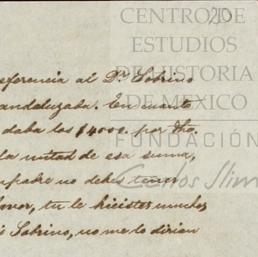 20
CENTRO DE
ESTUDIOS
DE HISTORIA
DE MEXICO
FUNDACIÓN
Carlos Slim
referencia al Pe. Sobrino
andaluzaba. En cuanto
daba los $4000. por
la mitad de esa suma,
padre no debes tener
amor, tu le hicistes muchos
Sobrino, no me lo dirian